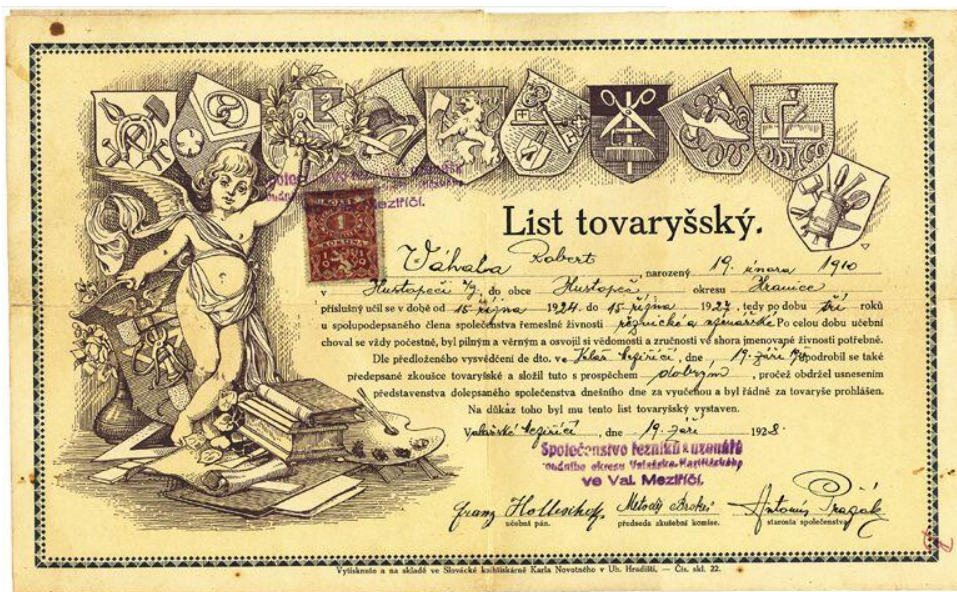 Společenstvo řezníků a uzenářů
Meziříčí.
1
KORUNA
1919
List tovaryšský.
Váhala Robert, narozený 19. února 1910
v Hustopeči n/B. do obce Hustopeč okresu Hranice
příslušný učil se v době od 15 října 1924 do 15 října 1927, tedy po dobu tří roků
u spolupodepsaného člena společenstva řemeslné živnosti řeznické a uzenářské. Po celou dobu učební
choval se vždy počestně, byl pilným a věrným a osvojil si vědomosti a zručnosti ve shora jmenované živnosti potřebné.
Dle předloženého vysvědčení de dto. ve Valaš. Meziříčí, dne 19. září podrobil se také
předepsané zkoušce tovaryšské a složil tuto s prospěchem dobrým, pročež obdržel usnesením
představenstva dolepsaného společenstva dnešního dne za vyučenou a byl řádně za tovaryše prohlášen.
Na důkaz toho byl mu tento list tovaryšský vystaven.
Valašské Meziříčí, dne 19. září 1928.
Společenstvo řezníků a uzenářů
soudního okresu Valašsko-Meziříčského
ve Val. Meziříčí.
Franz Metoděj Antonín Pražák
učební pán. předseda zkušební komise. starosta společenstva
Vytisknuto a na skladě ve Slovácké knihtiskárně Karla Novotného v Uh. Hradišti. — Čís. skl. 22.